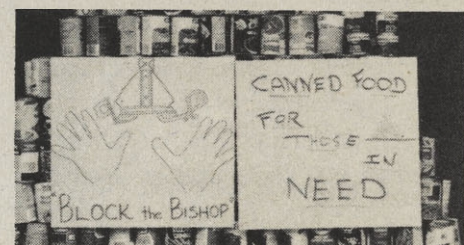 "BLOCK the BISHOP"
CANNED FOOD
FOR
THOSE
IN
NEED